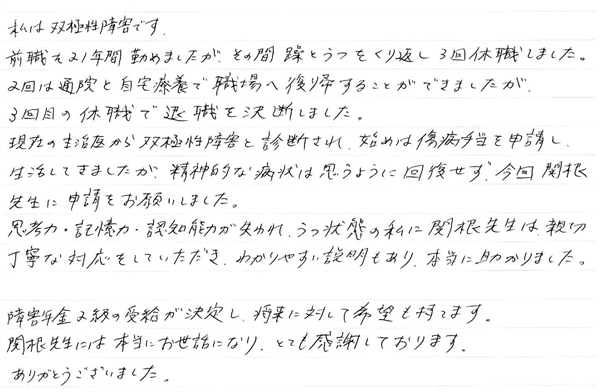 私は双極性障害です.
前職を21年間勤めましたが、その間 躁とうつをくり返し 3回休職しました。
2回は通院と自宅療養で職場へ復帰することができましたが、
3回目の休職で退職を決断しました。
現在の主治医から双極性障害と診断され、始めは傷病手当を申請し、
生活してきましたが、精神的な病状は思うように回復せず、今回 関根
先生に申請をお願いしました。
思考力・記憶力・認知能力が失われ、うつ状態の私に関根先生は、親切
丁寧な対応をしていただき、わかりやすい説明もあり、本当に助かりました。
障害年金2級の受給が決定し、将来に対して希望も持てます。
関根先生には本当にお世話になり、とても感謝しております。
ありがとうございました。